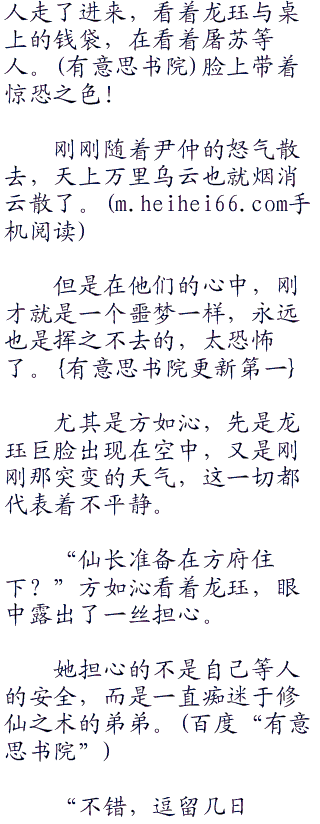 人走了进来，看着龙珏与桌
上的钱袋，在看着屠苏等
人。(有意思书院)脸上带着
惊恐之色！
刚刚随着尹仲的怒气散
去，天上万里乌云也就烟消
云散了。(m.heihei66.com手
机阅读)
但是在他们的心中，刚
才就是一个噩梦一样，永远
也是挥之不去的，太恐怖
了。{有意思书院更新第一}
尤其是方如沁，先是龙
珏巨脸出现在空中，又是刚
刚那突变的天气，这一切都
代表着不平静。
“仙长准备在方府住
下？”方如沁看着龙珏，眼
中露出了一丝担心。
她担心的不是自己等人
的安全，而是一直痴迷于修
仙之术的弟弟。(百度“有意
思书院”)
“不错，逗留几日